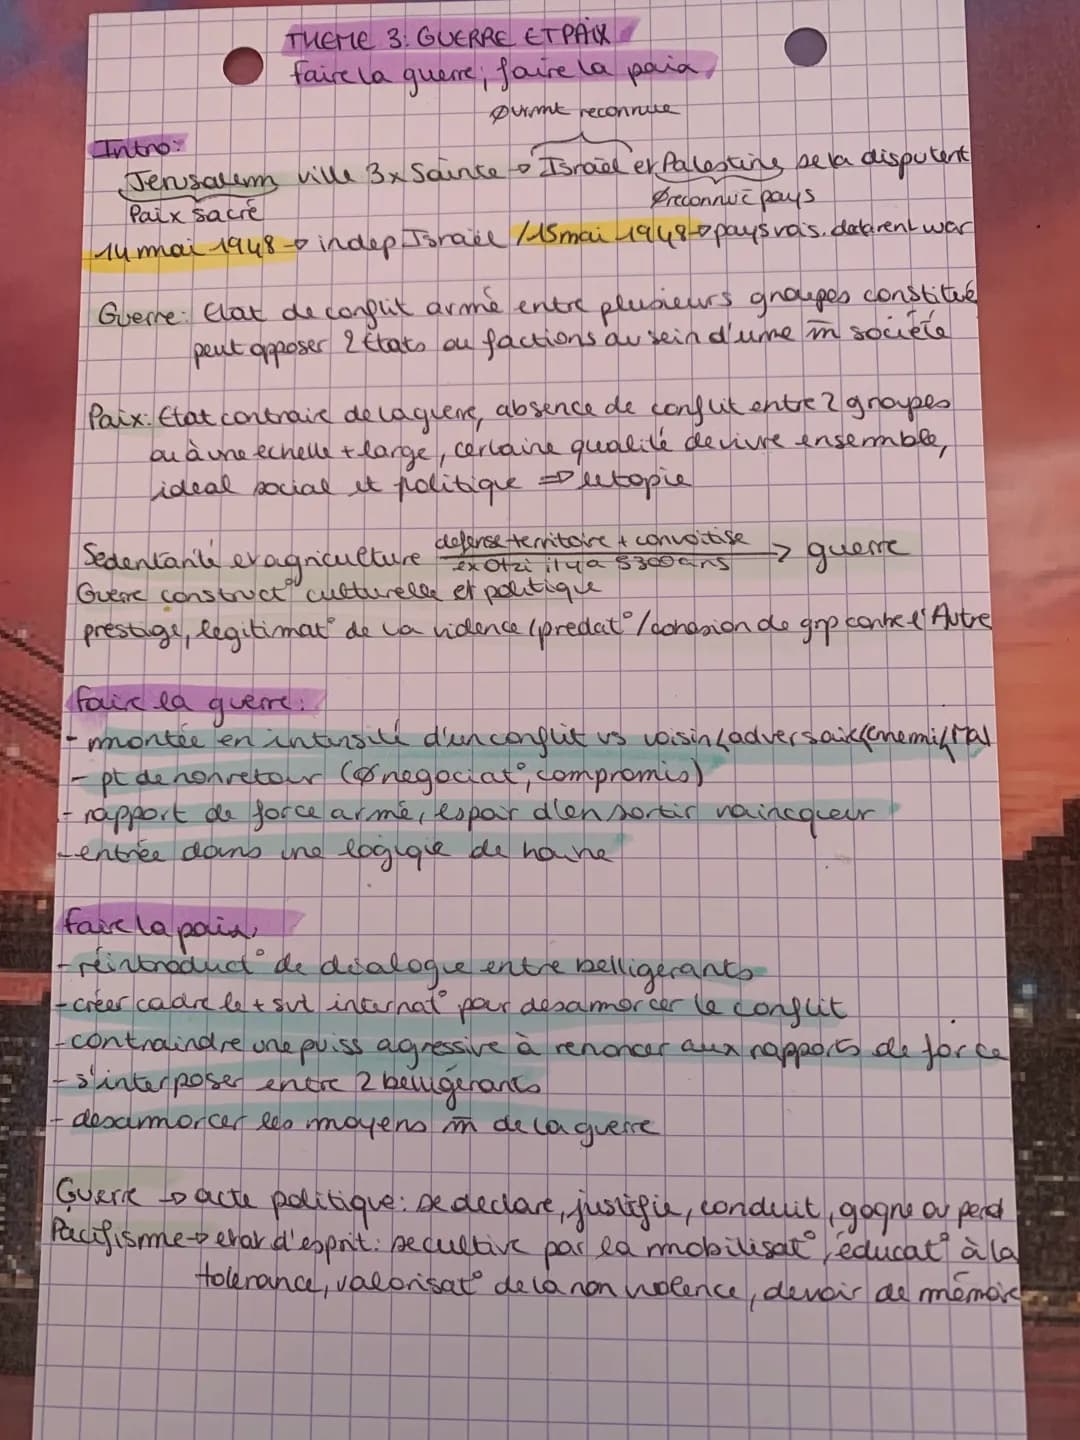 THEME 3: GUERRE ET PAIX
faire la guerre, faire la paix
∅urmt reconnue
Intro:
Jerusalem ville 3x Sainte → Israël et Palestine se la disputent
Paix sacré
∅reconnue pays
14 mai 1948 → indep Israël / 15 mai 1948 → pays vois. declarent war
Guerre: Etat de conflit armé entre plusieurs groupes constitué
peut opposer 2 Etats ou factions au sein d'une m̄ société
Paix: Etat contraire de la guerre, absence de conflit entre 2 groupes
ou à une echelle + large, certaine qualité de vivre ensemble,
ideal social et politique ⇒ utopie
defense territoire + convoitise
Sedentarité et agriculture → guerre
ex Otzi il y a 5300 ans
Guerre construct° culturelle et politique
prestige, legitimat° de la violence (predat°/cohesion de grp contre l'Autre
faire la guerre:
- montée en intensité d'un conflit vs voisin/adversaire/ennemi/Mal
- pt de non retour (∅negociat°, compromis)
- rapport de force armé, espoir d'en sortir vaincqueur
- entrée dans une logique de haine
faire la paix:
- réintroduct° de dialogue entre belligerants
- créer cadre le + svt internat° pour desamorcer le conflit
- contraindre une puiss agressive à renoncer aux rapports de force
- s'interposer entre 2 belligérants
- desarmorcer les moyens m̄ de la guerre
Guerre → acte politique: se declare, justifie, conduit, gagne ou perd
Pacifisme → etat d'esprit: se cultive par la mobilisat°, éducat° à la
tolerance, valorisat° de la non violence, devoir de mémoire